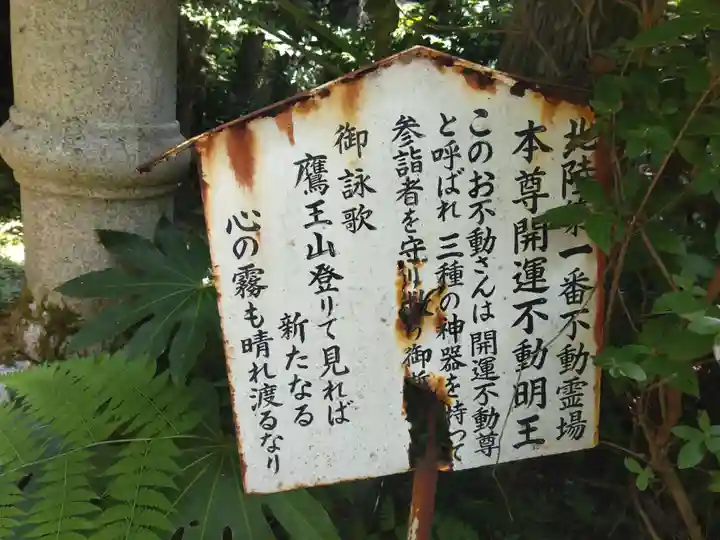 北陸第一番不動霊場
本尊開運不動明王
このお不動さんは開運不動尊
と呼ばれ 三種の神器を持つて
参詣者を守り 御
御詠歌
鷹王山登りて見れば
新たなる
心の霧も晴れ渡るなり